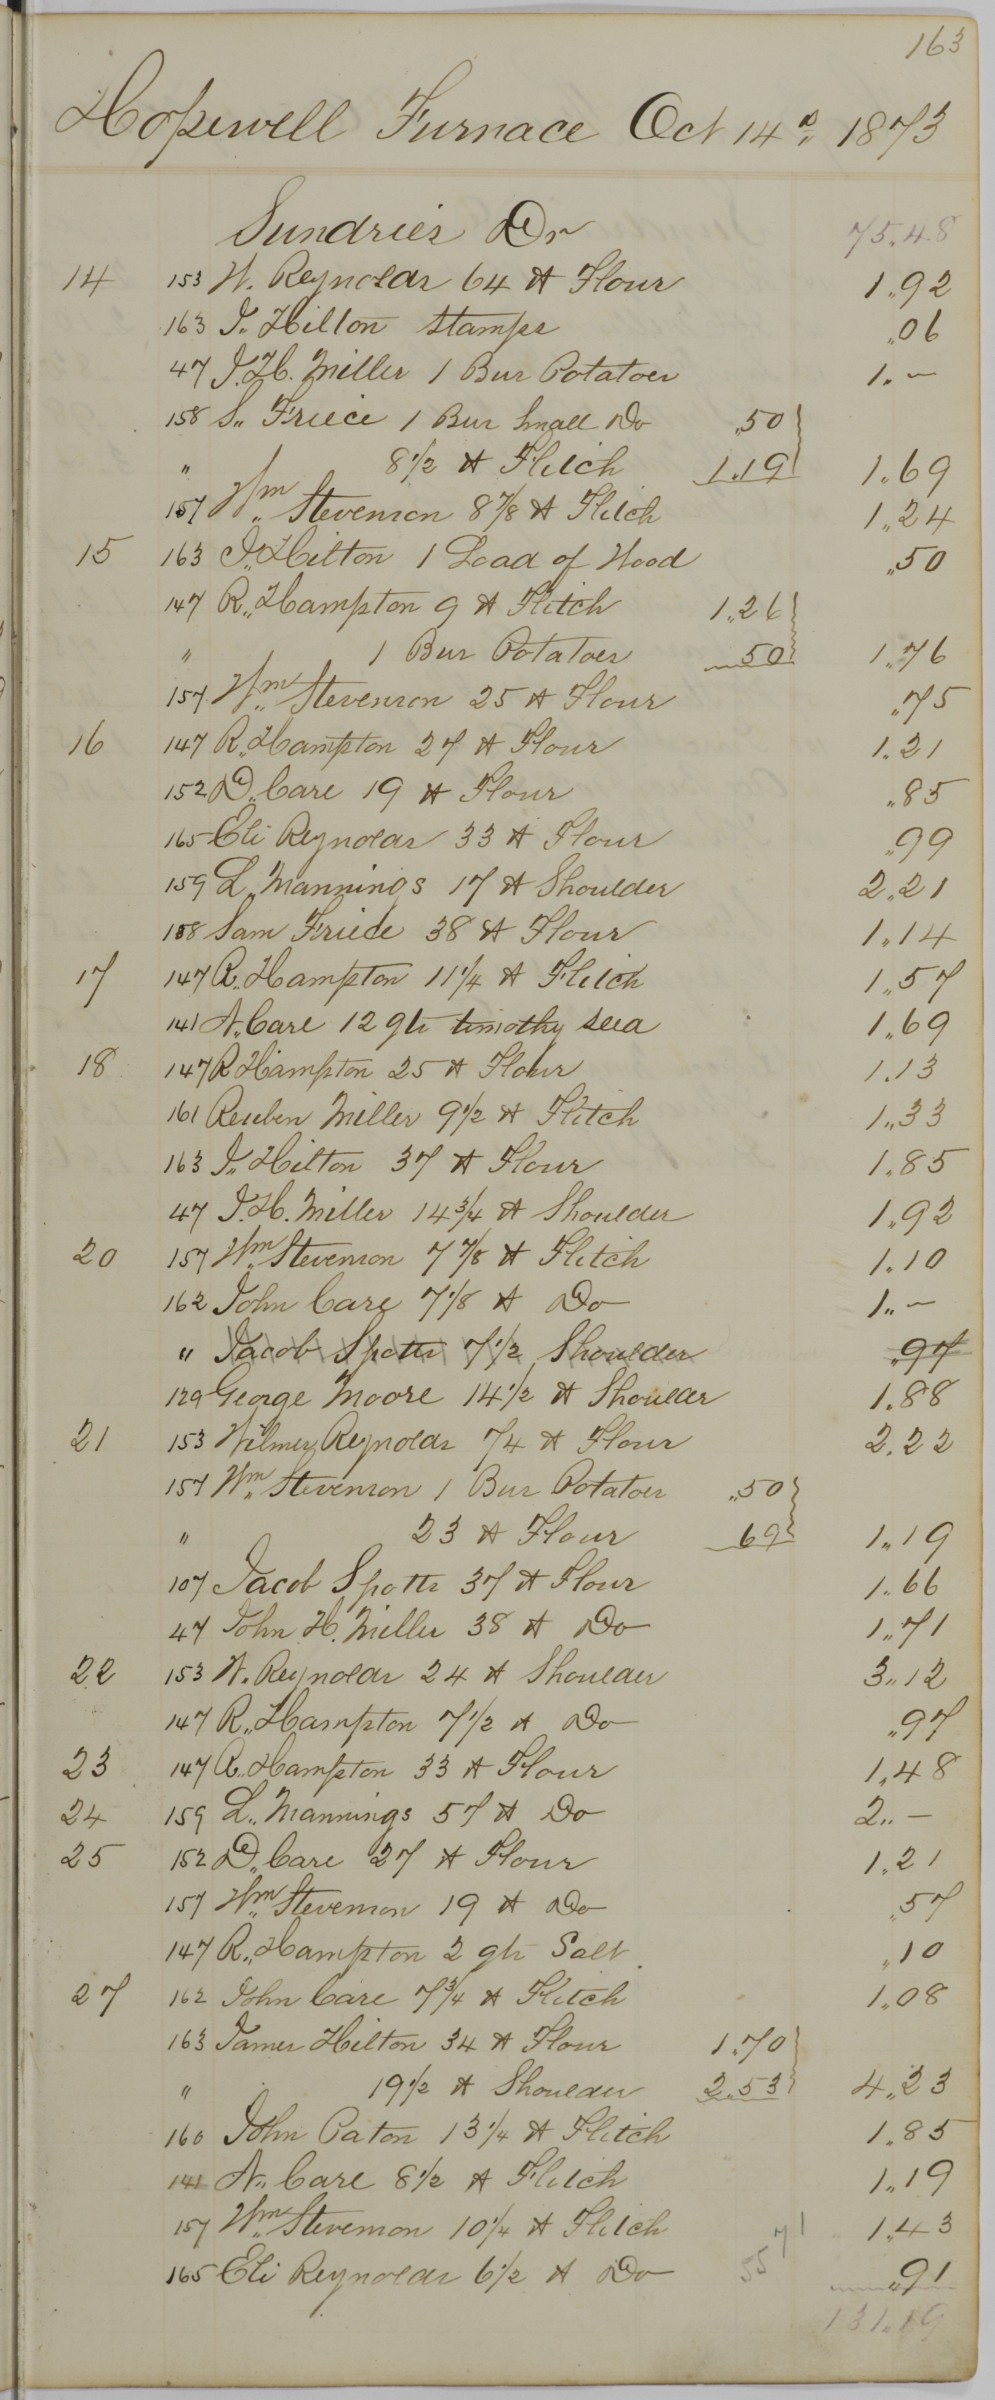 163
Hopewell Furnace Oct 14th 1873
Sundries Dr 75.48
14 153 W. Reynolds 64 # Flour 1.92
163 J. Hilton Stamps .06
47 J. H. Miller 1 Bus Potatoes 1.–
158 S. Friece 1 Bus Small Do .50
" 8 1/2 # Flitch 1.19 1.69
157 Wm Stevenson 8 7/8 # Flitch 1.24
15 163 J. Hilton 1 Load of Wood .50
147 R. Hampton 9 # Flitch 1.26
" 1 Bus Potatoes 50 1.76
157 Wm Stevenson 25 # Flour .75
16 147 R. Hampton 27 # Flour 1.21
152 D. Care 19 # Flour .85
165 Eli Reynolds 33 # Flour .99
159 L. Mannings 17 # Shoulder 2.21
158 Sam Friece 38 # Flour 1.14
17 147 R. Hampton 11 1/4 # Flitch 1.57
141 N. Care 12 qts timothy seed 1.69
18 147 R Hampton 25 # Flour 1.13
161 Reuben Miller 9 1/2 # Flitch 1.33
163 J. Hilton 37 # Flour 1.85
47 J. H. Miller 14 3/4 # Shoulder 1.92
20 157 Wm Stevenson 7 7/8 # Flitch 1.10
162 John Care 7 1/8 # Do 1.–
" Jacob Spotts 7 1/2 Shoulder .97
129 George Moore 14 1/2 # Shoulder 1.88
21 153 Wilmer Reynolds 74 # Flour 2.22
157 Wm Stevenson 1 Bus Potatoes .50
" 23 # Flour 69 1.19
107 Jacob Spotts 37 # Flour 1.66
47 John H. Miller 38 # Do 1.71
22 153 W. Reynolds 24 # Shoulder 3.12
147 R. Hampton 7 1/2 # Do .97
23 147 R. Hampton 33 # Flour 1.48
24 159 L. Mannings 57 # Do 2.–
25 152 D. Care 27 # Flour 1.21
157 Wm Stevenson 19 # Do .57
147 R. Hampton 2 qts Salt .10
27 162 John Care 7 3/4 # Flitch 1.08
163 James Hilton 34 # Flour 1.70
" 19 1/2 # Shoulder 2.53 4.23
160 John Paton 13 1/4 # Flitch 1.85
141 N. Care 8 1/2 # Flitch 1.19
157 Wm Stevenson 10 1/4 # Flitch 1.43
55 71
165 Eli Reynolds 6 1/2 # Do .91
131.19